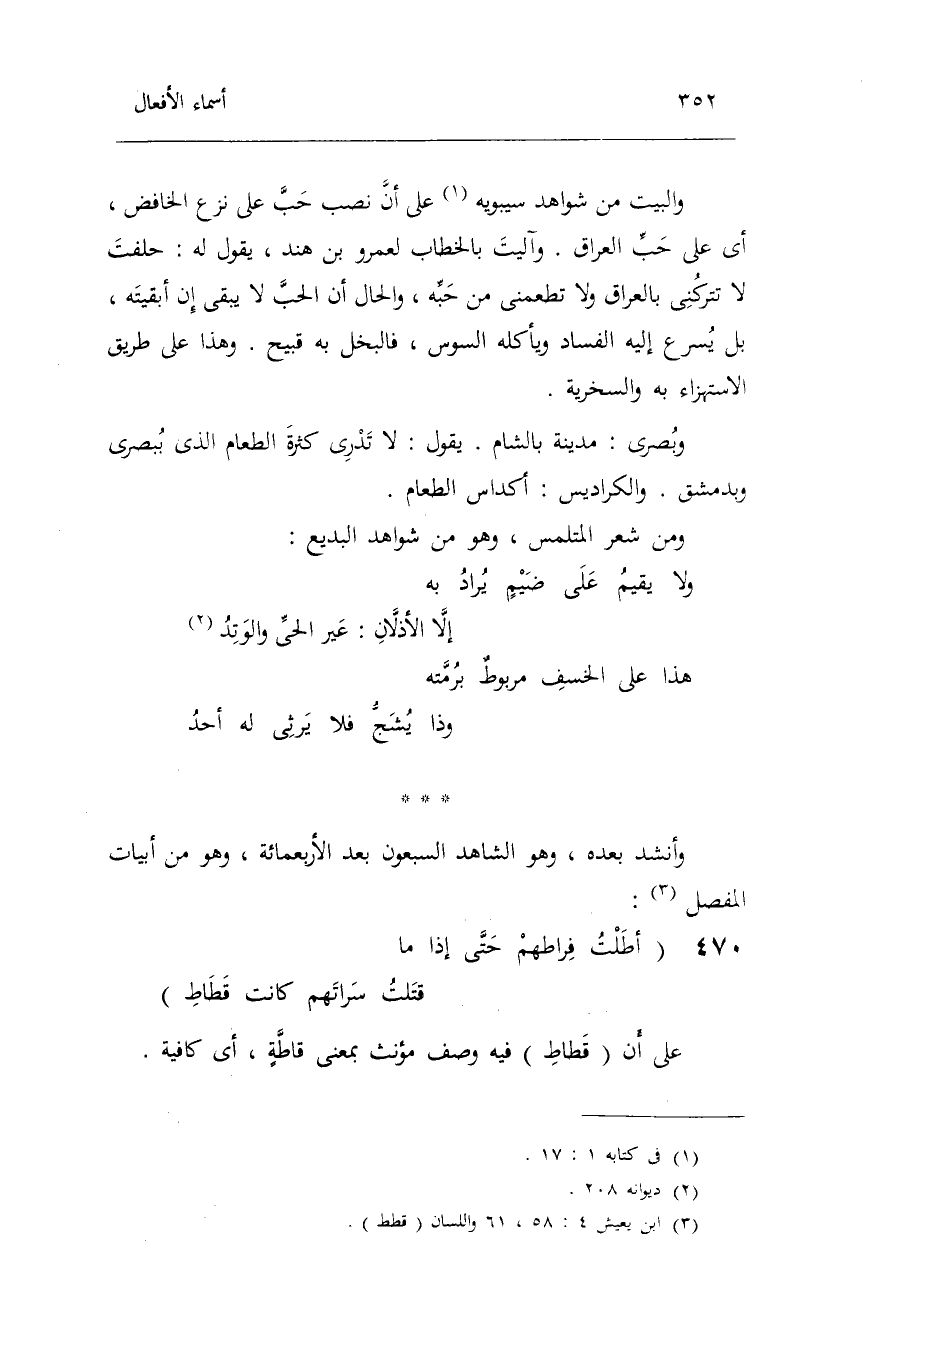 ٣٥٢ أسماء الأفعال
والبيت من شواهد سيبويه (١) على أنَّ نصب حَبَّ على نزع الخافض ،
أى على حَبِّ العراق . وآليتَ بالخطاب لعمرو بن هند ، يقول له : حلفتَ
لا تتركُنِى بالعراق ولا تطعمنى من حَبِّه ، والحال أن الحبَّ لا يبقى إن أبقيتَه ،
بل يُسرع إليه الفساد ويأكله السوس ، فالبخل به قبيح . وهذا على طريق
الاستهزاء به والسخرية .
وبُصرى : مدينة بالشام . يقول : لا تَدْرِى كثرةَ الطعام الذى بُبصرى
وبدمشق . والكراديس : أكداس الطعام .
ومن شعر المتلمس ، وهو من شواهد البديع :
ولا يقيمُ عَلَى ضَيْمٍ يُرادُ به
إلَّا الأذلَّانِ : عَير الحىِّ والوَتِدُ (٢)
هذا على الخسفِ مربوطٌ برُمَّته
وذا يُشَجُّ فلا يَرثِى له أحدُ
* * *
وأنشد بعده ، وهو الشاهد السبعون بعد الأربعمائة ، وهو من أبيات
المفصل (٣) :
٤٧٠ ( أطَلْتُ فِراطهمْ حَتَّى إذا ما
قتَلتُ سَراتَهم كانت قَطَاطِ )
على أن ( قَطاطِ ) فيه وصف مؤنث بمعنى قاطَّةٍ ، أى كافية .
(١) فى كتابه ١ : ١٧ .
(٢) ديوانه ٢٠٨ .
(٣) ابن يعيش ٤ : ٥٨ ، ٦١ واللسان ( قطط ) .